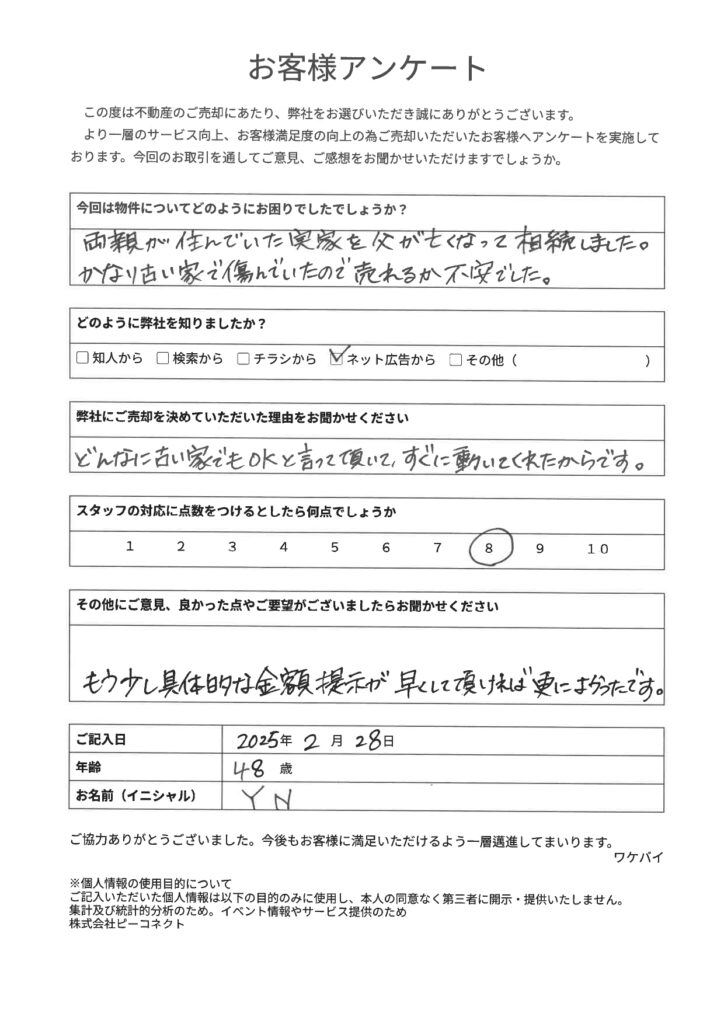 お客様アンケート
この度は不動産のご売却にあたり、弊社をお選びいただき誠にありがとうございます。
より一層のサービス向上、お客様満足度の向上の為ご売却いただいたお客様へアンケートを実施して
おります。今回のお取引を通してご意見、ご感想をお聞かせいただけますでしょうか。
今回は物件についてどのようにお困りでしたでしょうか？
両親が住んでいた実家を父が亡くなって相続しました。
かなり古い家で傷んでいたので売れるか不安でした。
どのように弊社を知りましたか？
□知人から □検索から □チラシから ☑ネット広告から □その他（ ）
弊社にご売却を決めていただいた理由をお聞かせください
どんなに古い家でもOKと言って頂いて、すぐに動いてくれたからです。
スタッフの対応に点数をつけるとしたら何点でしょうか
1 2 3 4 5 6 7 8 9 10
その他にご意見、良かった点やご要望がございましたらお聞かせください
もう少し具体的な金額提示が早くして頂ければ更によかったです。
ご記入日 2025年 2月 28日
年齢 48歳
お名前（イニシャル） YN
ご協力ありがとうございました。今後もお客様に満足いただけるよう一層邁進してまいります。
ワケバイ
※個人情報の使用目的について
ご記入いただいた個人情報は以下の目的のみに使用し、本人の同意なく第三者に開示・提供いたしません。
集計及び統計的分析のため。イベント情報やサービス提供のため
株式会社ピーコネクト